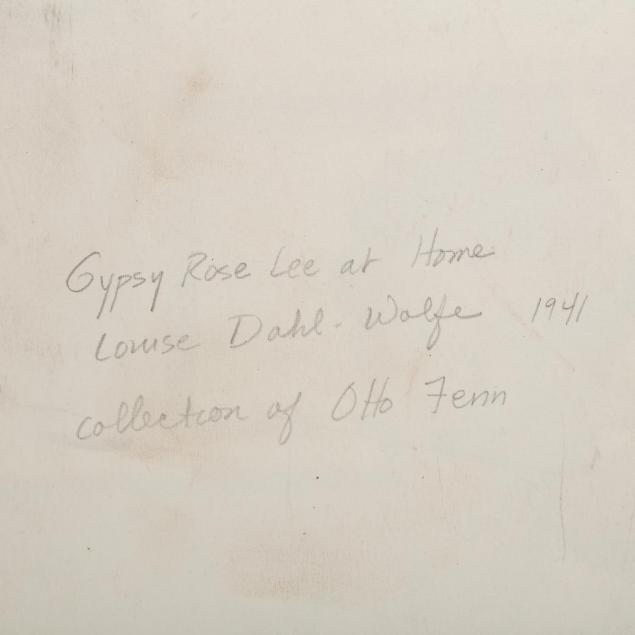 Gypsy Rose Lee at Home
Louise Dahl-Wolfe 1941
collection of Otto Fenn